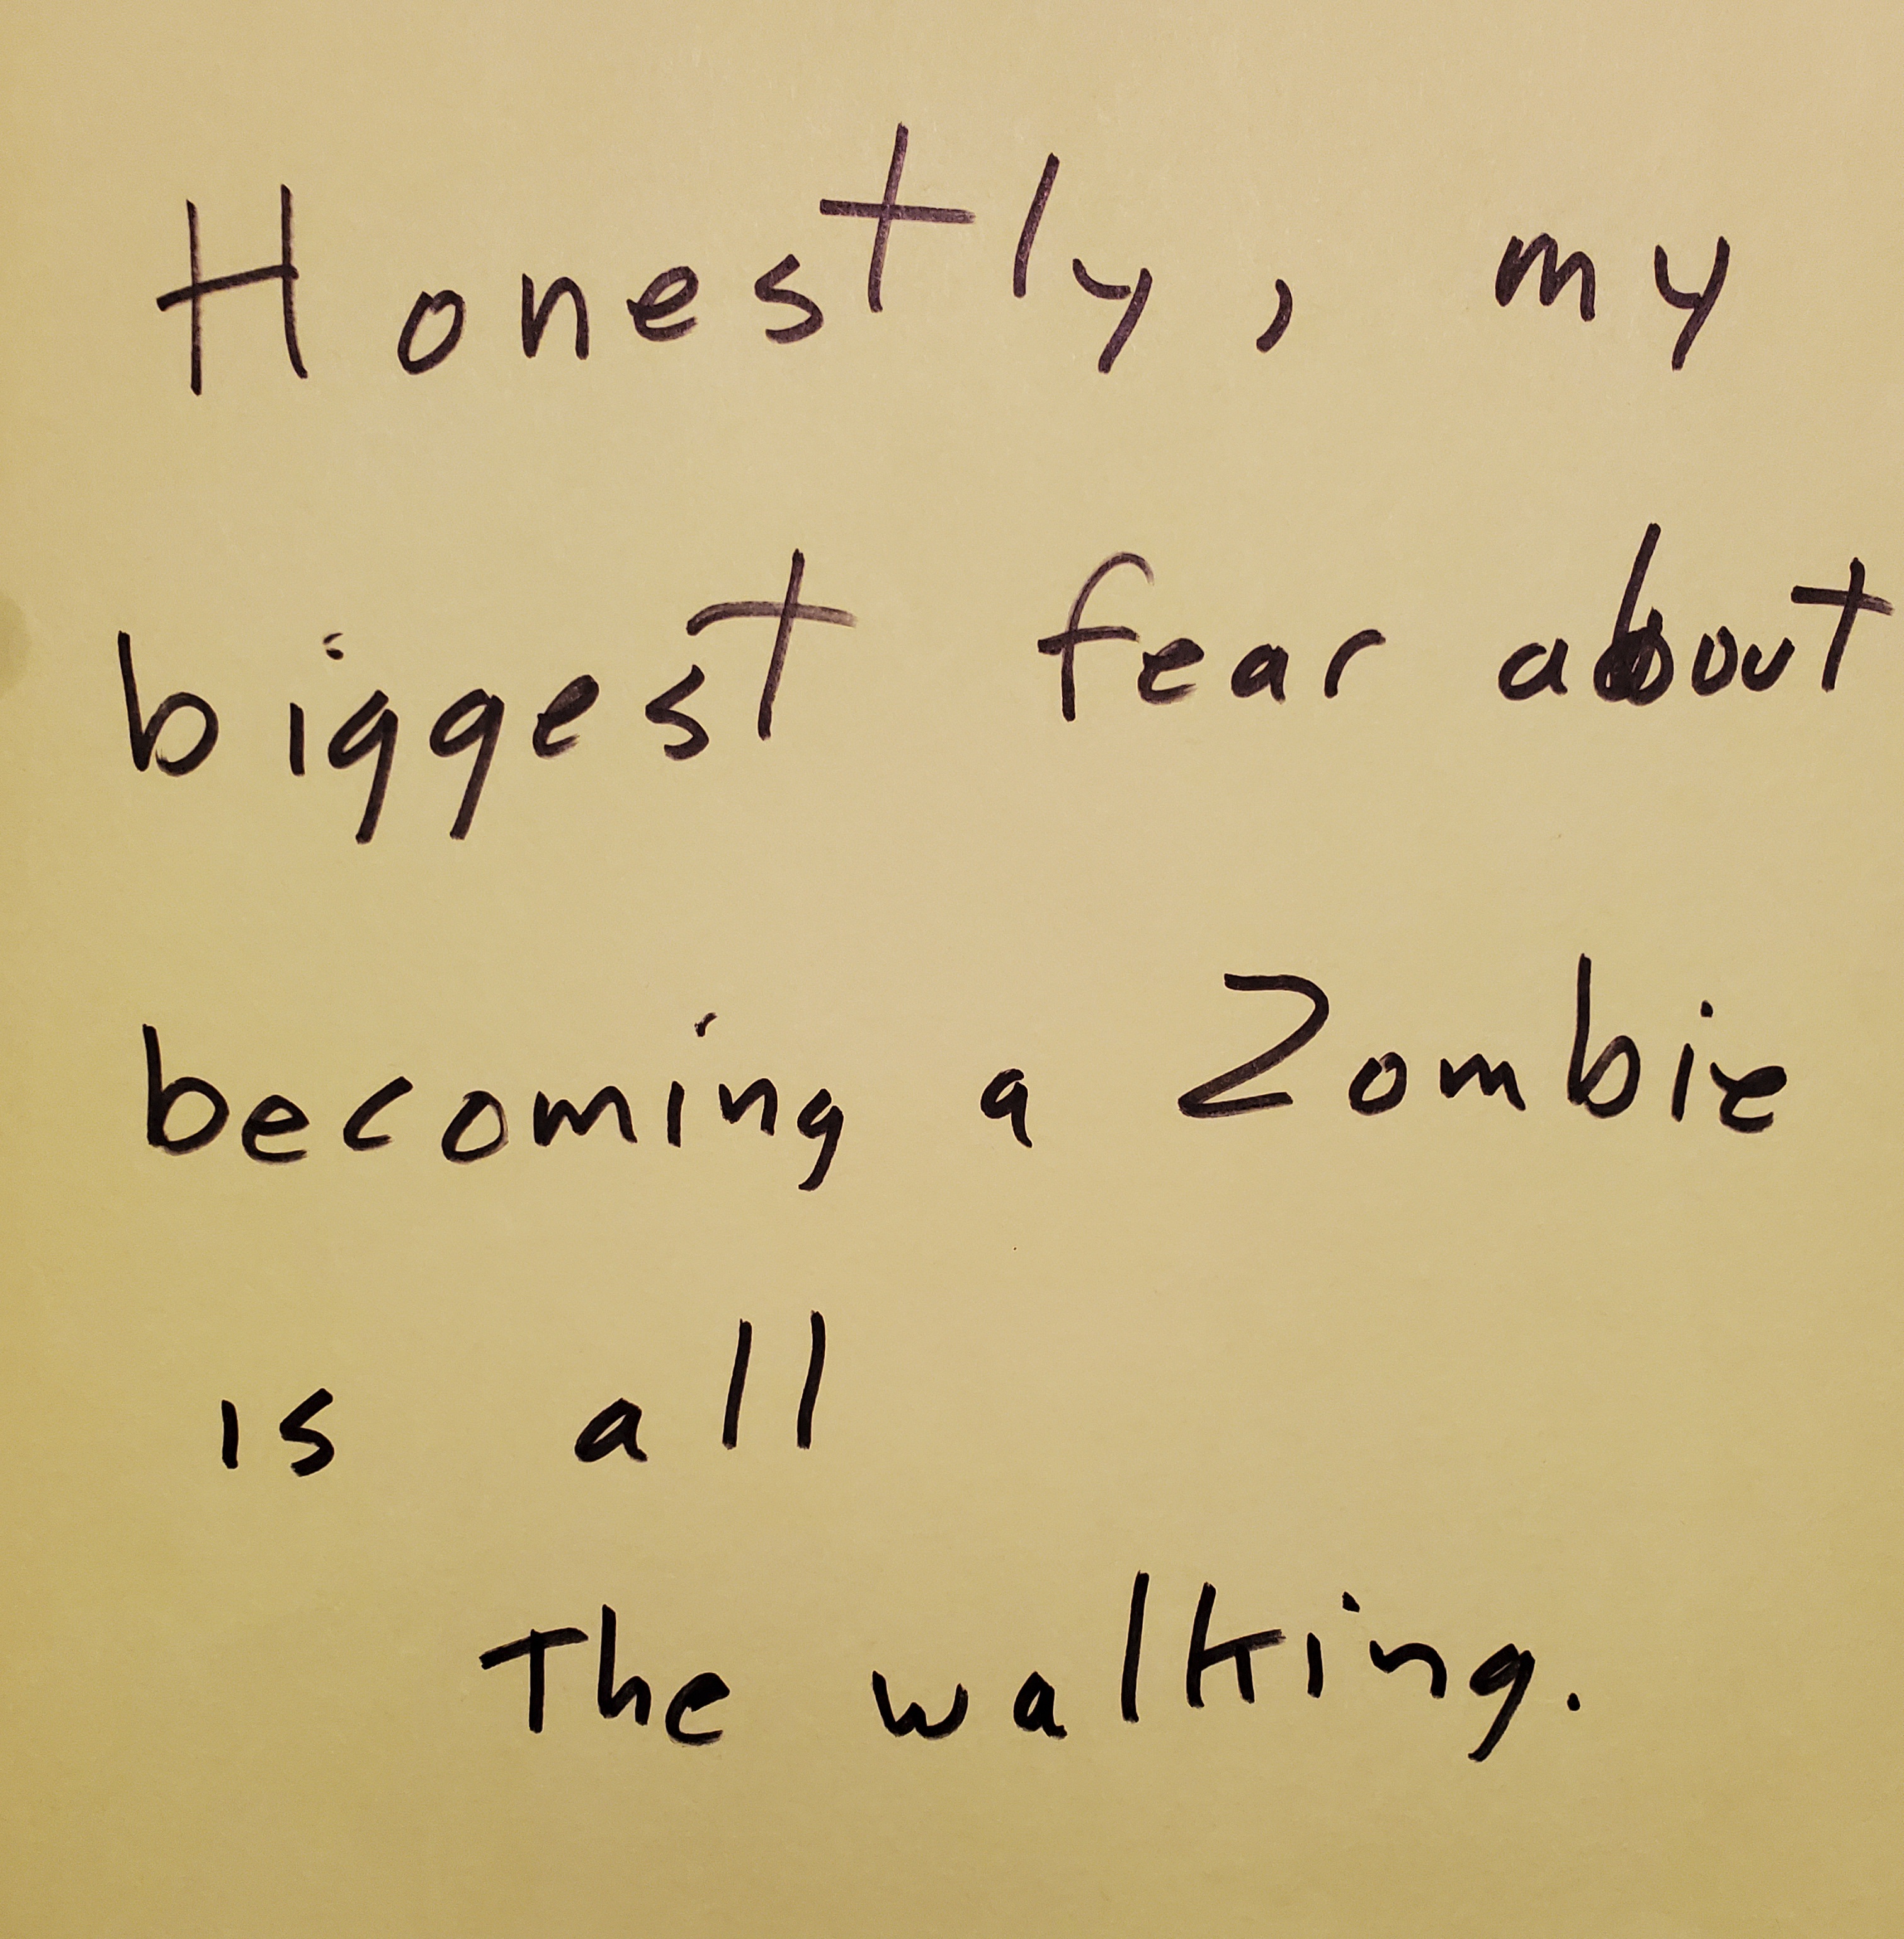 Honestly, my
biggest fear about
becoming a Zombie
is all
The walking.